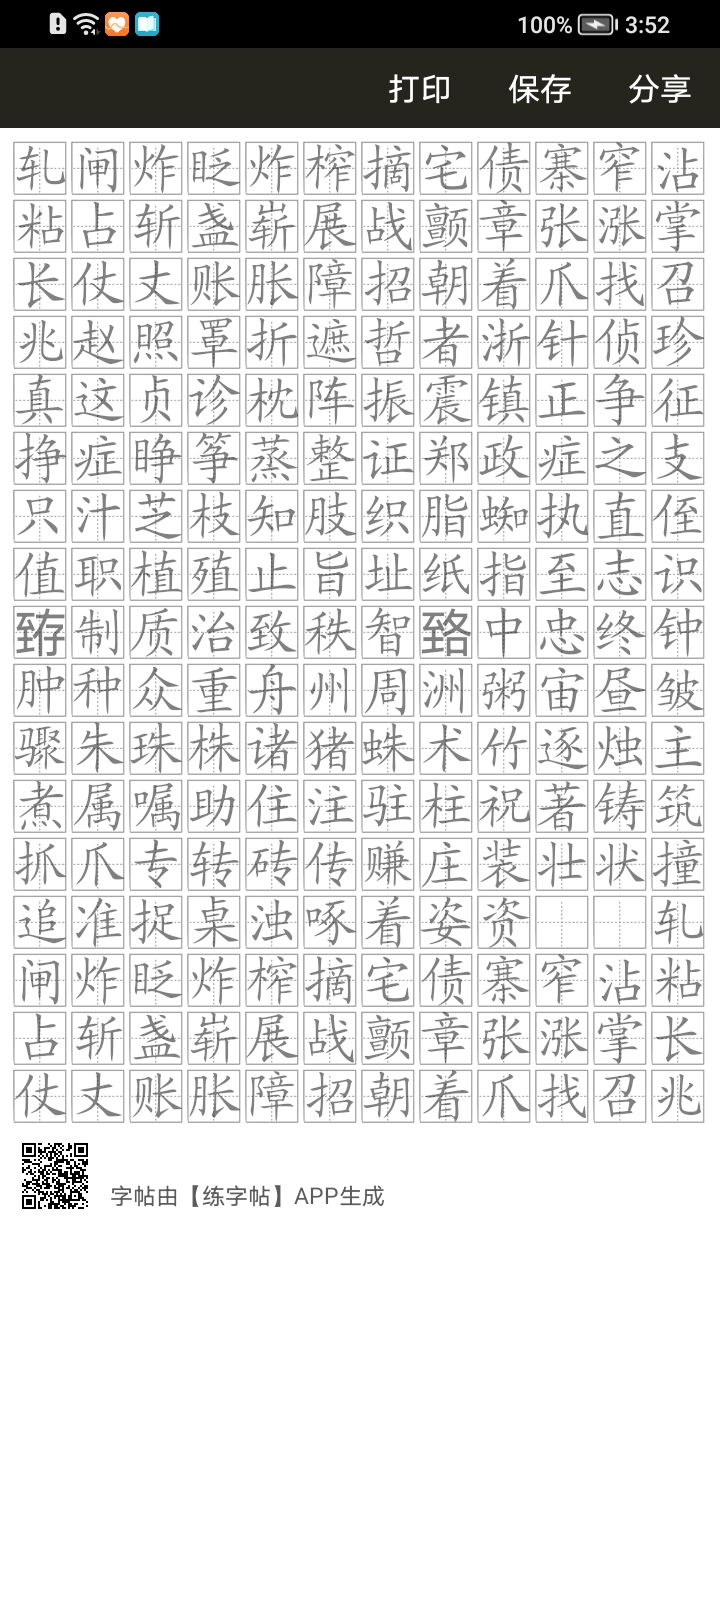 100% 3:52
打印 保存 分享
轧闸炸眨炸榨摘宅债寨窄沾
粘占斩盏崭展战颤章张涨掌
长仗丈账胀障招朝着爪找召
兆赵照罩折遮哲者浙针侦珍
真这贞诊枕阵振震镇正争征
挣症睁筝蒸整证郑政症之支
只汁芝枝知肢织脂蜘执直侄
值职植殖止旨址纸指至志识
制质治致秩智中忠终钟
肿种众重舟州周洲粥宙昼皱
骤朱珠株诸猪蛛术竹逐烛主
煮属嘱助住注驻柱祝著铸筑
抓爪专转砖传赚庄装壮状撞
追准捉桌浊啄着姿资 轧
闸炸眨炸榨摘宅债寨窄沾粘
占斩盏崭展战颤章张涨掌长
仗丈账胀障招朝着爪找召兆
字帖由【练字帖】APP生成